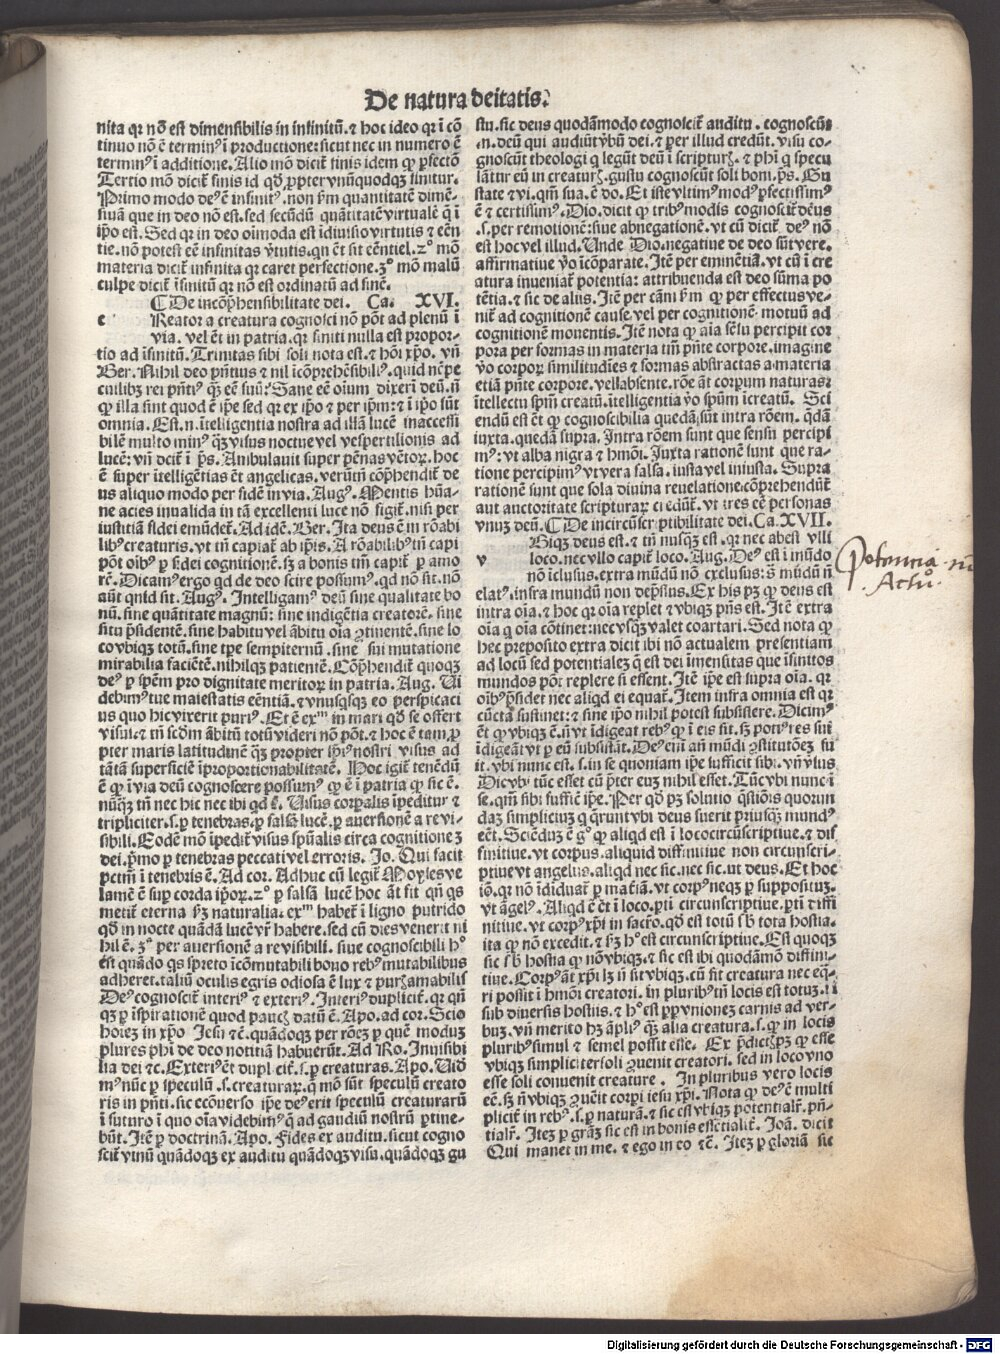 De natura deitatis.
nita qꝛ nō est dimensibilis in infinitū. ⁊ hoc ideo qꝛ ī cō
tinuo nō ē terminꝰ ī productione: sicut nec in numero ē
terminꝰ ī additione. Alio mō dicit̄ finis idem qꝫ ꝑfectō
Tertio mō dicit̄ finis id qd̄, ꝓpter vnūquodqꝫ finitur.
Primo modo deꝰ ē infinitꝰ. non ẜm quantitatē dimē⸗
siuā que in deo nō est. sed secūdū quātitatē virtualē q̄ ī
ip̄o est. Sed qꝛ in deo oīmoda est īdiuisio virtutis ⁊ eēn
tie. nō potest eē infinitas v̄tutis. qn ēt sit eēntiel. 2° mō
materia dicit̄ infinita qꝛ caret perfectione. 3° mō malū
culpe dicit̄ īfinitū qꝛ nō est ordinatū ad finē.
¶ De incōp̄hensibilitate dei. Ca. XVI.
c Reator a creatura cognosci nō pōt ad plenū ī
via. vel ēt in patria. qꝛ finiti nulla est propor⸗
tio ad īfinitū. Trinitas sibi soli nota est. ⁊ hoī xp̄o. vn̄
Ber. Nihil deo pn̄tius ⁊ nil īcōprehēsibiliꝰ. quid nēpe
cuilibꝫ rei pn̄tiꝰ qꝫ eē suū: Sane eē oium dixerī deū. n̄
qꝫ illa sint quod ē ip̄e sed qꝛ ex ip̄o ⁊ per ip̄m: ⁊ ī ip̄o sūt
omnia. Est. n. ītelligentia nostra ad illā lucē inaccessi
bilē multo minꝰ qꝫ visus noctue vel vespertilionis ad
lucē: vn̄ dcīt̄ ī ps̄. Ambulauit super pēnas vētoꝝ. hoc
ē super ītelligētias ēt angelicas. verūtn̄ cōp̄hendit̄ de
us aliquo modo per fidē in via. Augꝰ. Mentis hūa⸗
ne acies inualida in tā excellenti luce nō figit̄. nisi per
iustitiā fidei emūdet̄. Ad idē. Ber. Ita deus ē in rōabi
libꝰ creaturis. vt tn̄ capiat̄ ab ip̄is. A rōabilibꝰ tn̄ capi
pōt oībꝰ ꝑ fidei cognitionē. ſꝫ a bonis tn̄ capit̄ ꝑ amo
rē. Dicamꝰ ergo qd de deo scire possumꝰ. qd nō sit. nō
aūt quid sit. Augꝰ. Intelligamꝰ deū sine qualitate bo
nū. sine quantitate magnū: sine indigētia creatorē. sine
situ p̄sidentē. sine habitu vel ābitu oīa ꝯtinentē. sine lo
co vbiqꝫ totū. sine tꝑe sempiternū. sine sui mutatione
mirabilia faciētē. nihilqꝫ patientē. Cōp̄hendit̄ quoqꝫ
deꝰ ꝑ spēm pro dignitate meritoꝝ in patria. Aug. Ui
debimꝰ tue maiestatis eēntiā. ⁊ vnusqꝫ eo perspicaci
us quo hic vixerit puriꝰ. Et ē exᵐ in mari qd̄ se offert
visui: ⁊ tn̄ scdm ābitū totū videri nō pōt. ⁊ hoc ē tam ꝓ
pter maris latitudinē qꝫ propter hoīs nostri visus ad
tātā superficiē īproportionabilitatē. Hoc igit̄ tenēdū
ē qꝫ ī via deū cognoscere possumꝰ qꝫ ē ī patria qꝫ sic ē.
nūqꝫ tn̄ nec hic nec ibi qd ē. Uisus corpalis īpeditur ⁊
tripliciter. s. ꝑ tenebras. ꝑ falsā lucē. ꝑ auersionē a re vi⸗
sibili. Eodē mō īpedit̄ visus spūalis circa cognitionē
dei. p̄mo ꝑ tenebras peccati vel erroris. Jo. Qui facit
pctm̄ ī tenebris ē. Ad cor. Adhuc cū legit̄ Moyses ve
lamē ē sup corda ipoꝝ. 2° ꝑ falsā lucē hoc āt fit qn̄ qs
metit̄ eterna ẜꝫ naturalia. exᵐ habet̄ ī ligno putrido
qd̄ in nocte quādā lucē vr̄ habere. sed cū dies venerit ni
hil ē. 3° per auersionē a re visibili. siue cognoscibili hᵒ
est quādo qs spreto īcōmutabili bono rebꝰ mutabilibus
adheret. taliū oculis egris odiosa ē lux ⁊ purꝫ amabilis
Deꝰ cognoscit̄ interiꝰ ⁊ exteriꝰ. Interiꝰ duplicit̄. qꝛ qn̄
qꝫ ꝑ īspirationē quod paucꝫ datū ē. Apo. ad cor. Scio
hoīez in xp̄o Jesu ⁊ē. quādoqꝫ per rōes ꝑ quē modū
plures phī de deo notitiā habuerūt. Ad Ro. Inuisibi
lia dei ⁊c. Exteriꝰ ēt duplicit̄. s. ꝑ creaturas. Apo. Uidē
mꝰ nūc ꝑ speculū. s. creaturaꝝ. q̄ mō sūt speculū creato
ris in pn̄ti. sic ecōuerso ip̄e deꝰ erit speculū creaturarū
ī futuro ī quo oīa videbimꝰ q̄ ad gaudiū nostrū ꝑtine⸗
būt. Itē ꝑ doctrinā. Apo. Fides ex auditu. sicut cogno
scit̄ vinū quādoqꝫ ex auditu quādoqꝫ visu. quādoqꝫ gu
stu. sic deus quodāmodo cognoscit̄ auditu. cognoscūt
.n. deū qui audiūt v̄bū dei. ⁊ per illud credūt. visu co⸗
gnoscūt theologi q̄ legūt deū ī scripturꝫ. ⁊ phī q̄ specu
lātur eū in creaturꝫ. gustu cognoscūt soli boni. ps̄. Gu
state ⁊ vi. qm̄ sua. ē do. Et iste vltimꝰ modꝰ ꝑfectissimꝰ
ē ⁊ certissimꝰ. Dio. dicit qꝫ tribꝰ modis cognoscit̄ deus
.s. per remotionē: siue abnegationē. vt cū dicit̄ deꝰ nō
est hoc vel illud. Unde Dio. negatiue de deo sūt vere.
affirmatiue v̄o īcōparate. Itē per eminētiā. vt cū ī cre
atura inueniat̄ potentia: attribuenda est deo sūma po
tētia. ⁊ sic de aliis. Itē per cām ẜm qꝫ per effectus ve⸗
nit̄ ad cognitionē cause. vel per cognitionē motuū ad
cognitionē mouentis. Itē nota qꝫ aīa sēsu percipit cor
pora per formas in materia tn̄ pn̄te corpore. imagine
v̄o corpoꝝ similitudīes ⁊ formas abstractas a materia
etiā pn̄te corpore. vel absente. rōe āt corpum naturas:
ītellectu spm̄ creatū. ītelligentia v̄o spūm īcreatū. Sci
endū est ēt qꝫ cognoscibilia quedā sūt intra rōem. qdā
iuxta. quedā supra. Intra rōem sunt que sensu percipi
mꝰ: vt alba nigra ⁊ hmōi. Juxta rationē sunt que ra⸗
tione percipimꝰ vt vera falsa. iusta vel iniusta. Supra
rationē sunt que sola diuina reuelatione cōprehendūt̄
aut auctoritate scripturaꝝ credūt̄. vt tres eē personas
vnuꝫ deū. ¶ De incircūscriptibilitate dei. Ca. XVII.
v Biqꝫ deus est. ⁊ tn̄ nusqꝫ est. qꝛ nec abest vlli
loco. nec vllo capit̄ loco. Aug. Deꝰ est ī mūdo
nō īclusus. extra mūdū nō exclusus: sꝫ mūdū n̄
elatꝰ. infra mundū non dep̄ssus. Ex his pꝫ qꝫ deus est
intra oīa. ⁊ hoc qꝛ oīa replet ⁊ vbiqꝫ pn̄s est. Itē extra
oīa q̄ oīa cōtinet: nec vsqꝫ valet coartari. Sed nota qꝫ
hec prepositio extra dicit ibi nō actualem presentiam
ad locū sed potentialeꝫ q̄ est dei īmensitas que īfinitos
mundos pōt replere si essent. Itē ip̄e est supra oīa. qꝛ
oībꝰ p̄sidet nec aliqd ei equat̄. Item infra omnia est qꝛ
cūcta sustinet: ⁊ sine ip̄o nihil potest subsistere. Dicimꝰ
ēt qꝫ vbiqꝫ ē. n̄ vt īdigeat rebꝰ qꝫ ī eis sit. sꝫ potiꝰ res sui
īdigeāt vt ꝑ eū subsistāt. Deꝰ em̄ an̄ mūdi ꝯstitutōeꝫ fu
it. vbi nunc est. s. in se quoniam ip̄e sufficit sibi. vn̄ v̄sus
Dic vbi tūc esset cū p̄ter eum nihil esset. Tūc vbi nunc ī
se. qm̄ sibi sufficit ip̄e. Per qd̄ pꝫ solutio qstiōis quorun
daꝫ simplicium q̄ q̄runt vbi deus fuerit priusqꝫ mundꝰ
eēt. Sciēduꝫ ē gᵒ qꝫ aliqd est ī loco circūscriptiue. ⁊ dif
finitiue. vt corpus. aliquid diffinitiue non circunscri⸗
ptiue vt angelus. aliqd nec sic. nec sic. ut deus. Et hoc
iō. qꝛ nō īdiuiduat̄ ꝑ mat̄iā. vt corpꝰ neqꝫ ꝑ suppositum.
vt āgelꝰ. Aliqd ē ēt ī loco. ꝑti circunscriptiue. ꝑti ⁊ diffi
nitiue. vt corpꝰ xp̄i in sacr̄o. qd̄ est totū sb̄ tota hostia.
ita qꝫ nō excedit. ⁊ ẜꝫ hᵒ est circunscriptiue. Est quoqꝫ
sic sb̄ hostia qꝫ nō vbiqꝫ. ⁊ sic est ibi quodāmō diffini⸗
tiue. Corpꝰ āt xp̄i lꝫ n̄ sit vbiqꝫ. cū sit creatura nec eq̄⸗
ri possit ī hmōi creatori. in pluribꝰ tn̄ locis est totuꝫ. s.
sub diuersis hostiis. ⁊ hᵒ est ꝓpt vnionez carnis ad ver⸗
buꝫ. vn̄ merito hꝫ āpliꝰ qꝫ alia creatura. s. qꝫ in locis
pluribꝰ simul ⁊ semel possit esse. Ex p̄dictꝫ pꝫ qꝫ esse
vbiqꝫ simpliciter soli ꝯuenit creatori. sed in loco vno
esse soli conuenit creature. In pluribus vero locis
eē. sꝫ n̄ vbiqꝫ ꝯuēit corpi iesu xp̄i. Nota qꝫ deꝰ ē multi
plicit̄ in rebꝰ. s. ꝑ naturā. ⁊ sic est vbiqꝫ potentialr̄. pn̄⸗
tialr̄. Itez ꝑ gr̄az sic est in bonis essētialit̄. Joā. dicit
Qui manet in me. ⁊ ego in eo ⁊c̄. Itez ꝑ gloriā sic
Potentia. nū
. Actū.
Digitalisierung gefördert durch die Deutsche Forschungsgemeinschaft - DFG